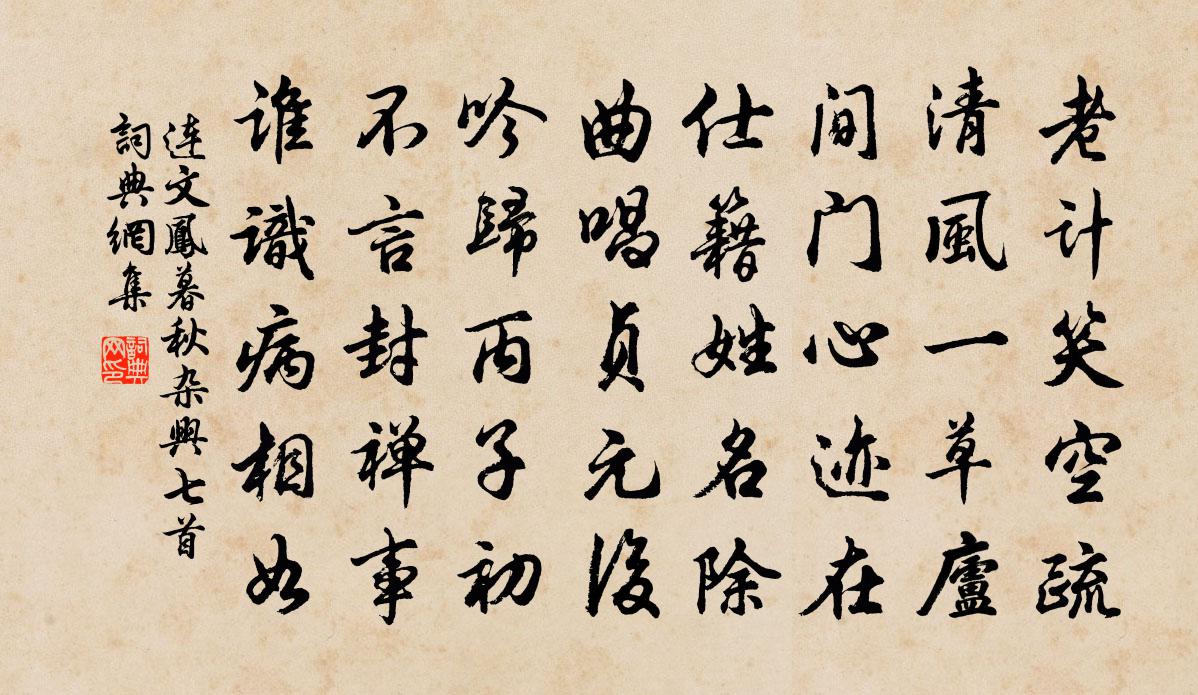 老计笑空疏
清風一草廬
间门心迹在
仕籍姓名除
曲唱贞元後
吟歸丙子初
不言封禅事
谁識病相如
连文鳳暮秋杂興七首
詞典網集
詞典网印